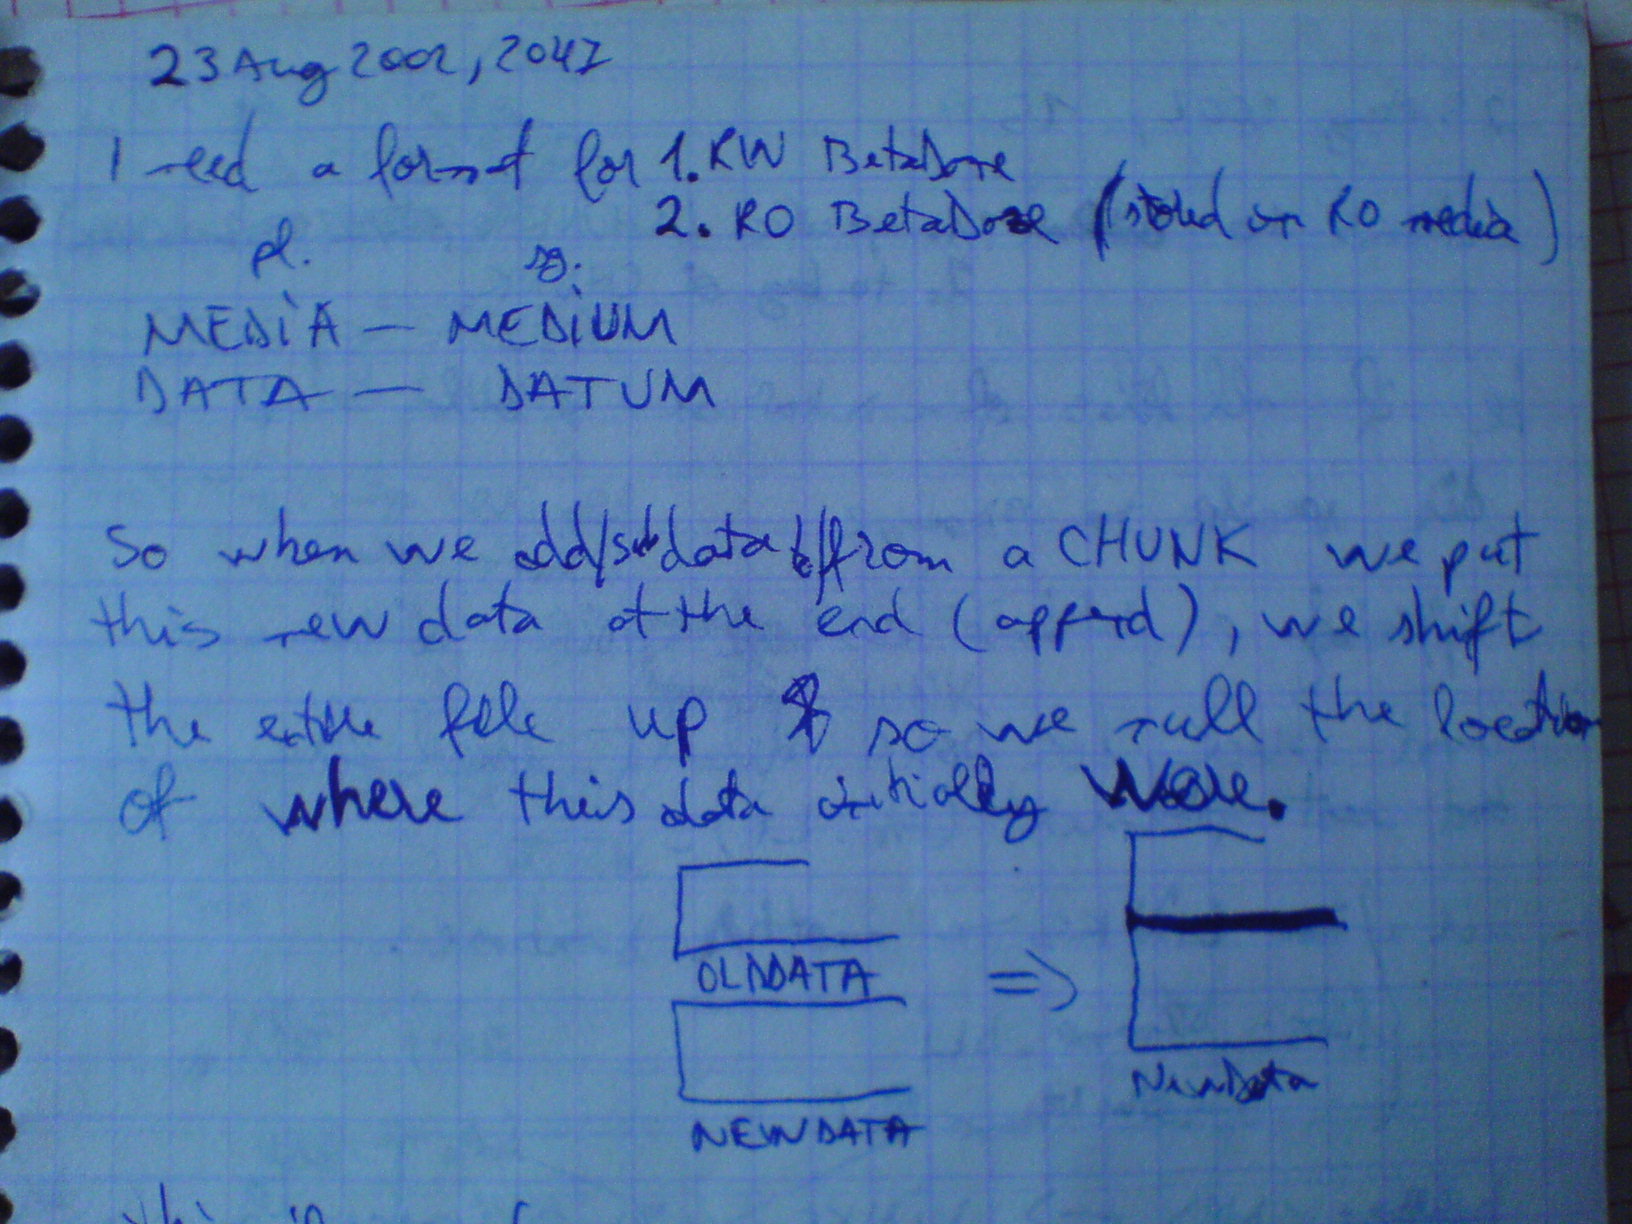 23 Aug 2002, 2047
I need a format for 1. RW BetaDone
2. RO BetaDone (stored on RO media)
pl. sg.
MEDIA — MEDIUM
DATA — DATUM
So when we add/sub data to/from a CHUNK we put
this new data at the end (append), we shift
the entire file up so we null the location
of where this data initially were.
OLDDATA
=>
NEWDATA
NewData